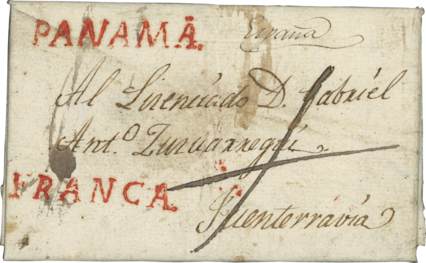 PANAMÁ. España
Al Licenciado D. Gabriel
Ant.º Zuzuarregui
FRANCA.
Fuenterravia